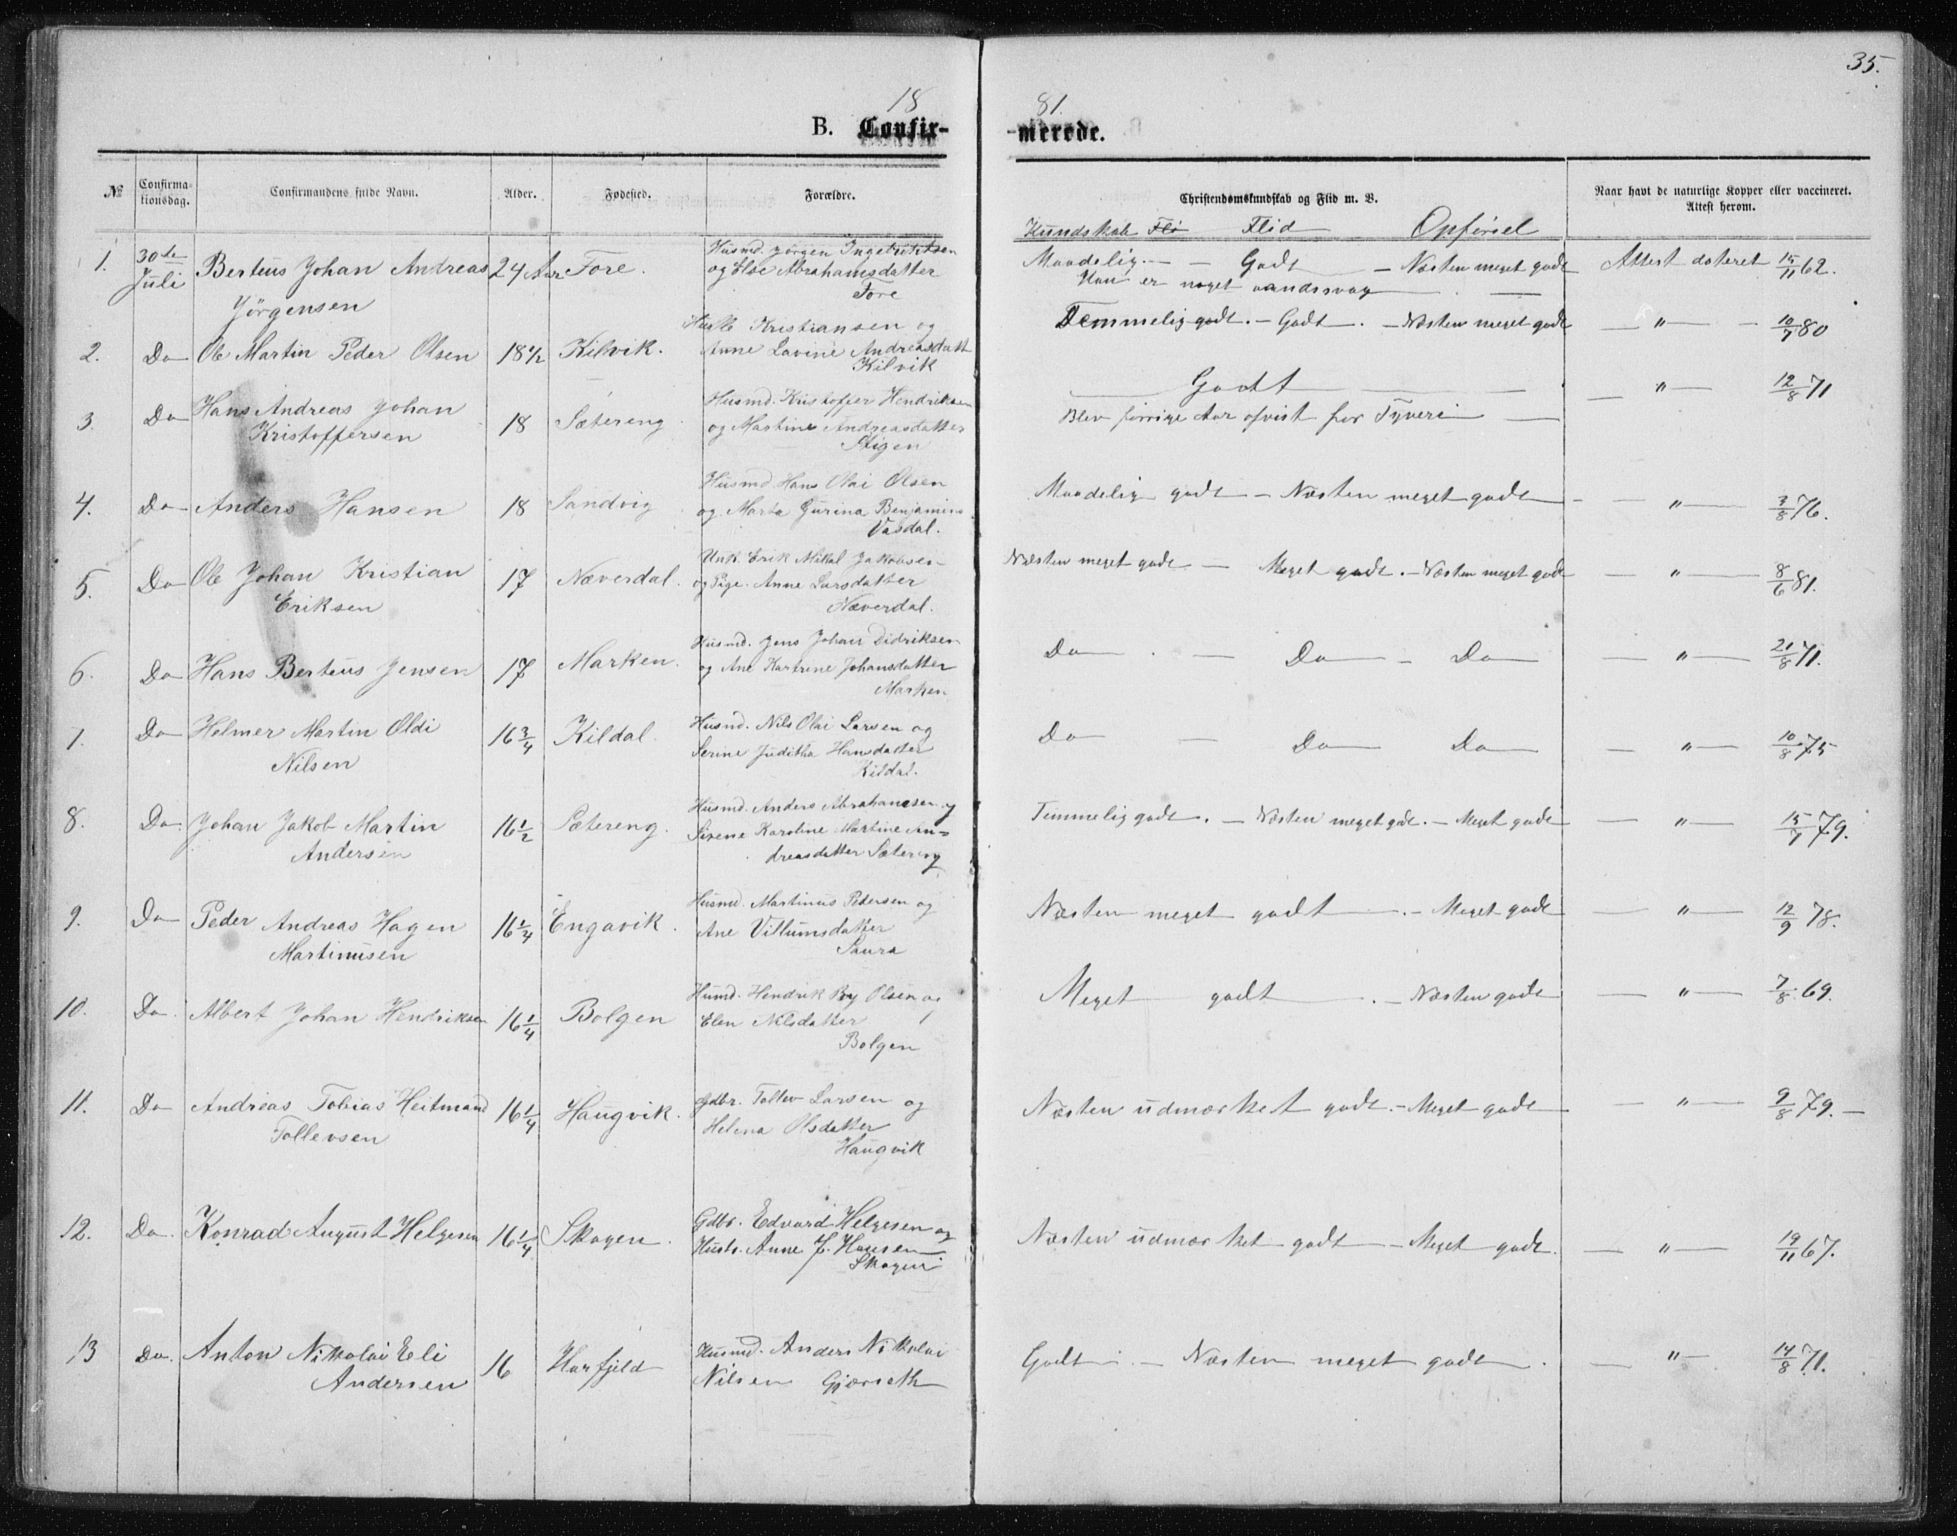 35.
18 81.
B. Confir- -merede.
№ Confirma-tionsdag. Confirmandens fulde Navn. Alder. Fødested. Forældre. Christendomskundskab og Flid m. V. Naar havt de naturlige Kopper eller vaccineret. Attest herom.
Kundskab Flid Opførsel
1. 30te Juli Berteus Johan Andreas 24 Aar Fore. Husmd. Jørgen Ingebriktsen Maadelig — Godt — Næsten meget godt Attest dateret 15/11 62.
Jörgensen og Else Abrahamsdatter Han er noget aandssvag
Fore
2. Do Ole Martin Peder Olsen 18 1/2 Kilvik. Kristiansen og Temmelig godt. — Godt. — Næsten meget godt — " — 10/7 80
Anne Lavine Andreasdatt
Kilvik
3. Do Hans Andreas Johan 18 Sætereng Husmd. Kristoffer Hendriksen Godt — " — 12/8 71
Kristoffersen og Martine Andreasdatter Blev forrige Aar afvist for Tyveri
Stigen
4. Do Anders Hansen 18 Sandvig Husmd. Hans Olai Olsen Maadelig godt — Næsten meget godt — " — 3/8 76.
og Marta Gurina Benjamins
Vasdal.
5. Do Ole Johan Kristian 17 Næverdal. Unk. Erik Mikal Jakobsen Næsten meget godt — Meget godt. — Næsten meget godt — " — 8/6 81.
Eriksen og Pige Anne Larsdatter
Næverdal.
6. Do Hans Berteus Jensen 17 Marken. Husmd. Jens Johan Didriksen Do — Do — Do — " — 21/8 71.
og Ane Katrine Johansdatter
Marken
7. Do Helmer Martin Oldi 16 3/4 Kildal. Husmd. Nils Olai Larsen og Do — Do Do — " — 10/8 75
Nilsen Serine Juditha Hansdatter
Kildal.
8. Do. Johan Jakob Martin 16 1/2 Sætereng. Husmd. Anders Abrahamsen og Temmelig godt. — Næsten meget godt. — Meget godt — " — 15/7 79.
Andersen Sirene Karoline Martine An=
dreasdatter Sætereng
9. Do Peder Andreas Hagen 16 1/4 Engavik. Husmd. Martinus Pedersen og Næsten meget godt — Meget godt — " — 12/9 78.
Martinusen Ane Villumsdatter
Saura
10. Do. Albert Johan Hendriksen 16 1/4 Bolgen Husmd. Hendrik Olsen og Meget godt — Næsten godt — " — 7/8 69.
Elen Nilsdatter
Bolgen
11. Do Andreas Tobias Heitmand 16 1/4 Haugvik. Gdbr. Tollev Larsen og Næsten udmærket godt. — Meget godt — " — 9/8 79. —
Tollevsen Helena Olsdatter
Haugvik
12. Do. Konrad August Helgesen 16 1/4 Skogen. Gdbr. Edvard Helgesen og Næsten udmærket godt — Meget godt. — " — 19/11 67.
Hustr. Anne J. Hansen
Skogen
13 Do. Anton Nikolai Eli 16 Harfjeld Husmd. Anders Nikolai Godt — Næsten meget godt. — " — 14/8 71.
Andersen Nilsen Gjærseth